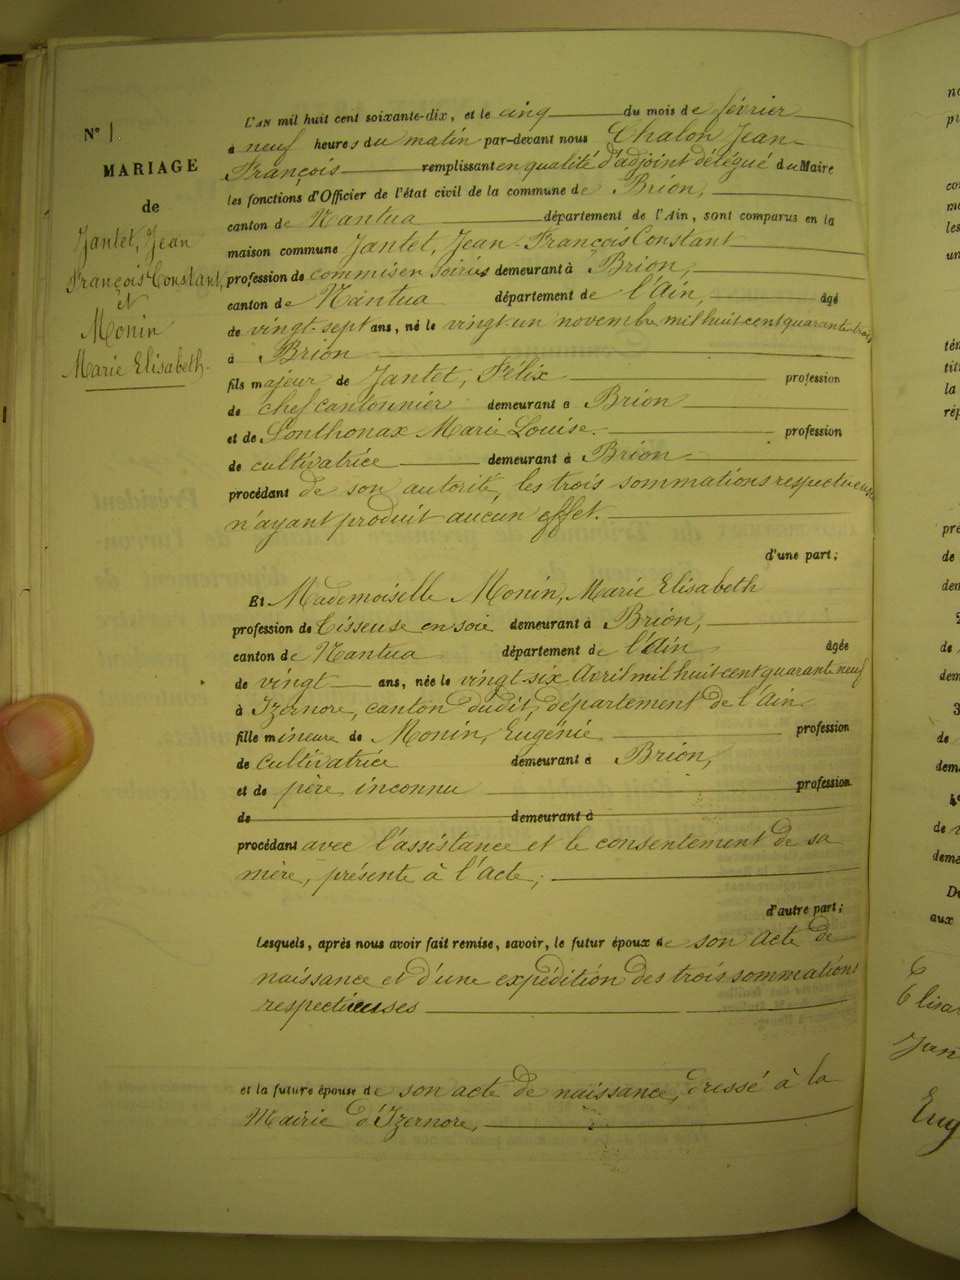 N° 1.
MARIAGE
de
Jantet, Jean
François Constant,
et
Monin
Marie Elisabeth
L'AN mil huit cent soixante-dix, et le cinq du mois de février
à neuf heures du matin par-devant nous Chalon Jean
François remplissant en qualité d'adjoint délégué du Maire
les fonctions d'Officier de l'état civil de la commune de Brion,
canton de Nantua département de l'Ain, sont comparus en la
maison commune Jantet, Jean-François Constant
profession de commis en soiries demeurant à Brion,
canton de Nantua département de l'Ain, âgé
de vingt-sept ans, né le vingt-un novembre mil huit cent quarante-trois
à Brion
fils majeur de Jantet, Félix profession
de chef cantonnier demeurant à Brion
et de Sonthonax Marie Louise. profession
de cultivatrice demeurant à Brion
procédant de son autorité, les trois sommations respectueuses
n'ayant produit aucun effet.
d'une part;
Et Mademoiselle Monin, Marie Elisabeth
profession de tisseuse en soie demeurant à Brion,
canton de Nantua département de l'Ain âgée
de vingt ans, née le vingt-six Avril mil huit cent quarante neuf
à Izernore, canton dudit, département de l'Ain
fille mineure de Monin, Eugénie profession
de cultivatrice demeurant à Brion,
et de père inconnu profession
de demeurant à
procédant avec l'assistance et le consentement de sa
mère, présente à l'acte;
d'autre part;
Lesquels, après nous avoir fait remise, savoir, le futur époux de son acte de
naissance et d'une expédition des trois sommations
respectueuses
et la future épouse de son acte de naissance, dressé à la
Mairie d'Izernore,